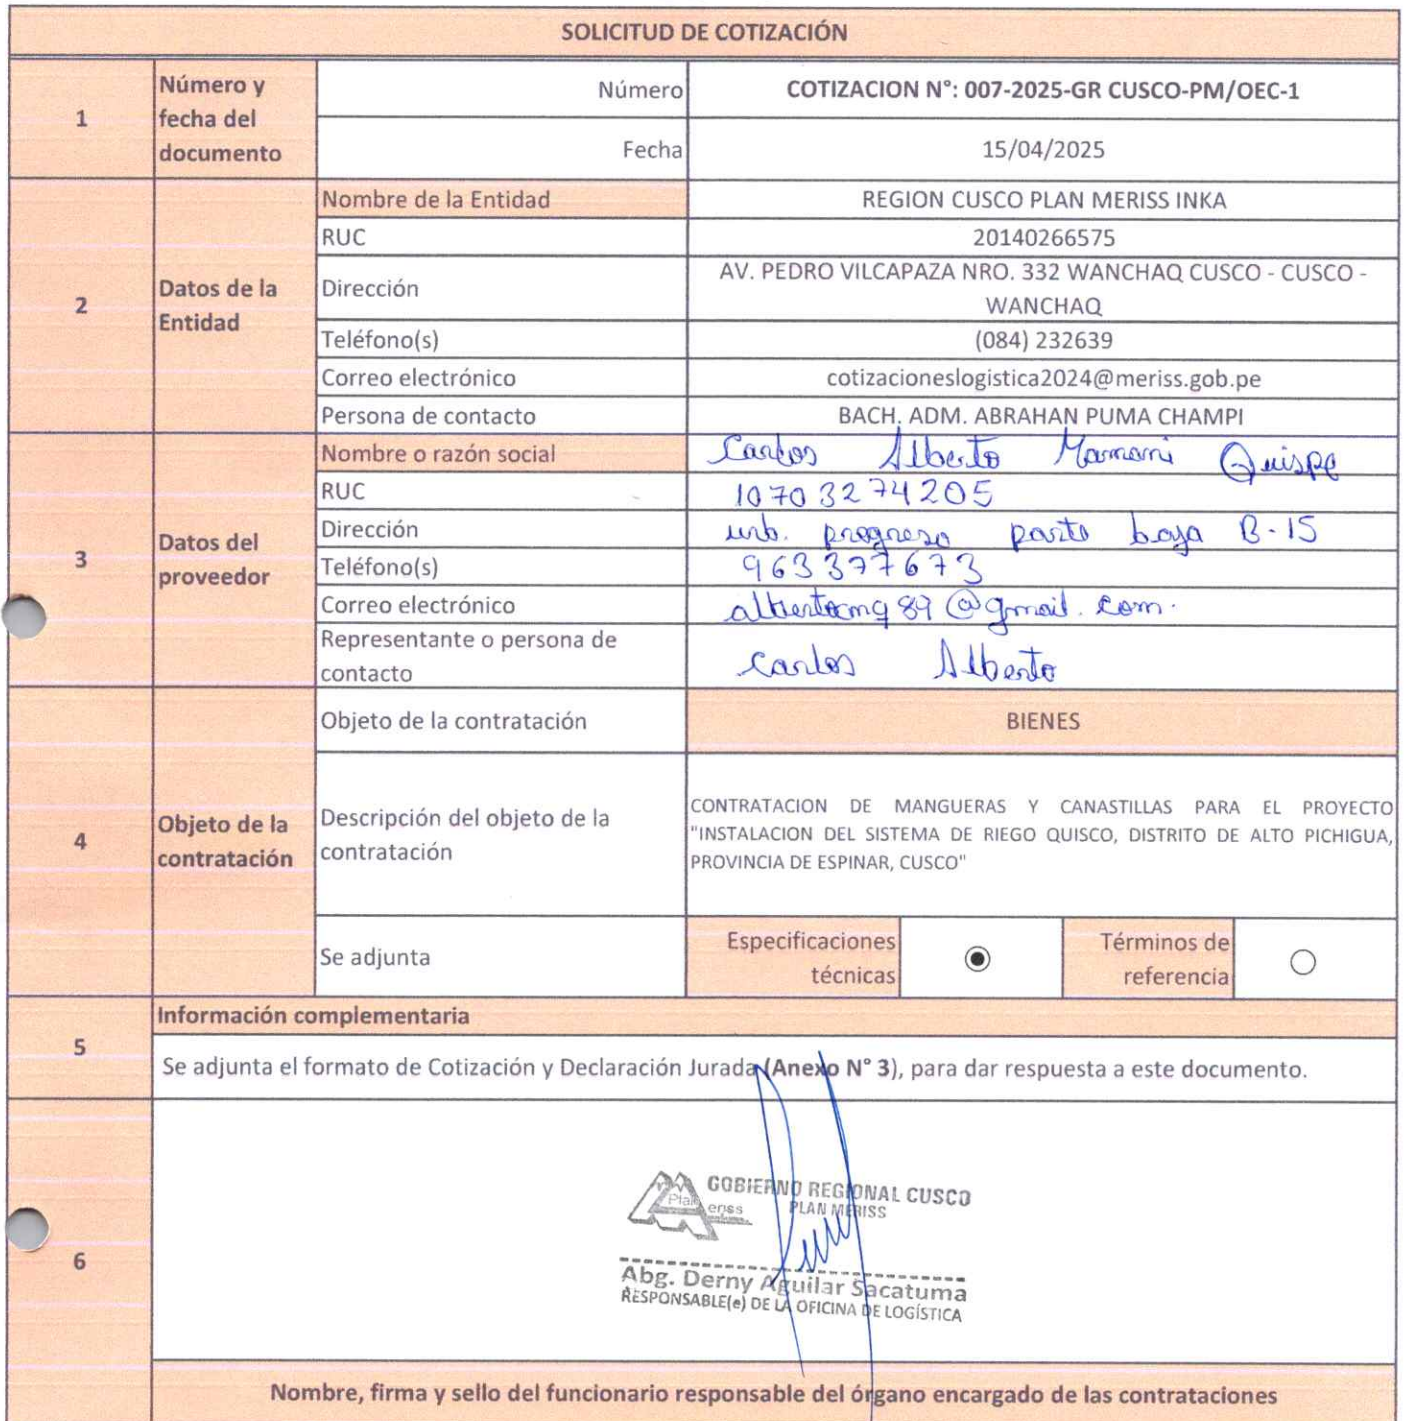 SOLICITUD DE COTIZACIÓN
1
Número y
fecha del
documento
Número
COTIZACION N°: 007-2025-GR CUSCO-PM/OEC-1
Fecha
15/04/2025
2
Datos de la
Entidad
Nombre de la Entidad
REGION CUSCO PLAN MERISS INKA
RUC
20140266575
Dirección
AV. PEDRO VILCAPAZA NRO. 332 WANCHAQ CUSCO - CUSCO -
WANCHAQ
Teléfono(s)
(084) 232639
Correo electrónico
cotizacioneslogistica2024@meriss.gob.pe
Persona de contacto
BACH. ADM. ABRAHAN PUMA CHAMPI
3
Datos del
proveedor
Nombre o razón social
Carlos Alberto Mamani Quispe
RUC
10703274205
Dirección
urb. progreso parte baja B-15
Teléfono(s)
963377673
Correo electrónico
albertocmq89@gmail.com.
Representante o persona de
contacto
Carlos Alberto
4
Objeto de la
contratación
Objeto de la contratación
BIENES
Descripción del objeto de la
contratación
CONTRATACION DE MANGUERAS Y CANASTILLAS PARA EL PROYECTO
"INSTALACION DEL SISTEMA DE RIEGO QUISCO, DISTRITO DE ALTO PICHIGUA,
PROVINCIA DE ESPINAR, CUSCO"
Se adjunta
Especificaciones
técnicas
Términos de
referencia
5
Información complementaria
Se adjunta el formato de Cotización y Declaración Jurada (Anexo N° 3), para dar respuesta a este documento.
6
Plan
GOBIERNO REGIONAL CUSCO
PLAN MERISS
Abg. Derny Aguilar Sacatuma
RESPONSABLE(e) DE LA OFICINA DE LOGÍSTICA
Nombre, firma y sello del funcionario responsable del órgano encargado de las contrataciones